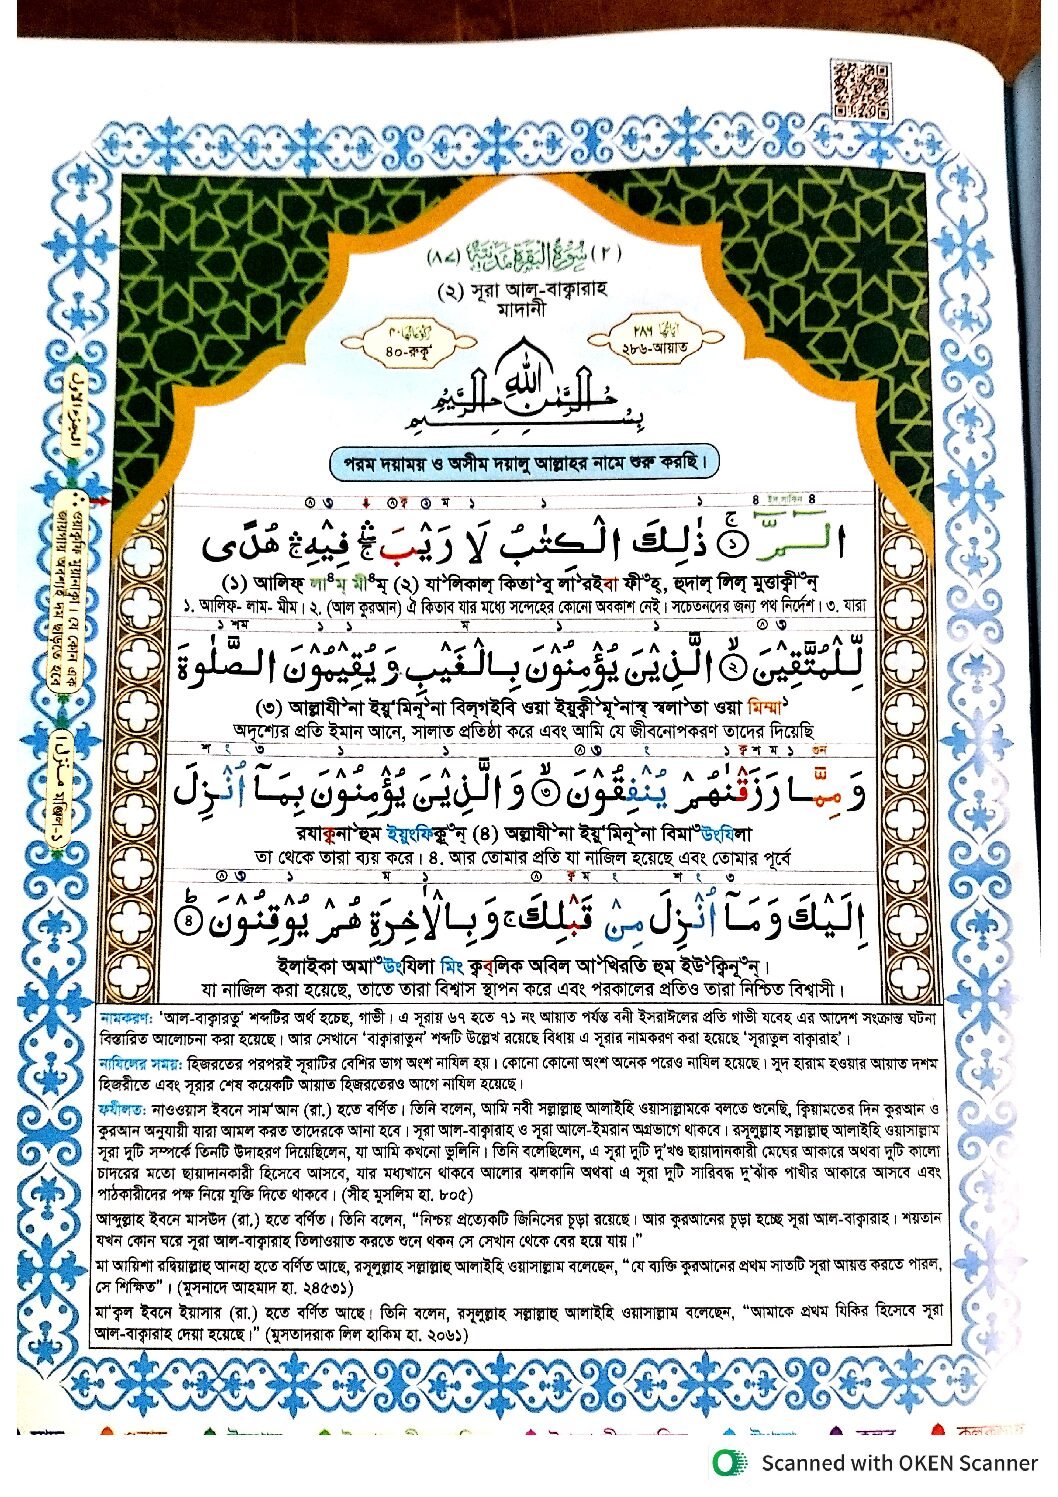 (٢) سُوْرَةُ الْبَقَرَةِ مَدَنِيَّةٌ (٨٧)
(২) সূরা আল-বাক্বারাহ
মাদানী
৪০-রুকূ'
২৮৬-আয়াত
بِسْمِ اللّٰهِ الرَّحْمٰنِ الرَّحِيْمِ
পরম দয়াময় ও অসীম দয়ালু আল্লাহর নামে শুরু করছি।
الٓمّٓ ۚ ① ذٰلِكَ الْكِتٰبُ لَا رَيْبَ ۛۖ فِيْهِ ۛۚ هُدًى
(১) আলিফ্ লা⁴ম্ মী⁴ম্ (২) যা'লিকাল্ কিতা'বু লা'রইবা ফী°হ্, হুদাল্ লিল্ মুত্তাক্বী°ন্
১. আলিফ- লাম- মীম। ২. (আল কুরআন) ঐ কিতাব যার মধ্যে সন্দেহের কোনো অবকাশ নেই। সচেতনদের জন্য পথ নির্দেশ। ৩. যারা
لِّلْمُتَّقِيْنَ ۙ② الَّذِيْنَ يُؤْمِنُوْنَ بِالْغَيْبِ وَيُقِيْمُوْنَ الصَّلٰوةَ
(৩) আল্লাযী'না ইয়ু'মিনূ'না বিল্গইবি ওয়া ইয়ুক্বী'মূ'নাস্ব্ স্বলা'তা ওয়া মিম্মা'
অদৃশ্যের প্রতি ইমান আনে, সালাত প্রতিষ্ঠা করে এবং আমি যে জীবনোপকরণ তাদের দিয়েছি
وَمِمَّا رَزَقْنٰهُمْ يُنْفِقُوْنَ ۙ③ وَالَّذِيْنَ يُؤْمِنُوْنَ بِمَآ اُنْزِلَ
রযাক্বুনা'হুম ইয়ুংফিক্বূ°ন্ (৪) অল্লাযী'না ইয়ু'মিনূ'না বিমা°উংযিলা
তা থেকে তারা ব্যয় করে। ৪. আর তোমার প্রতি যা নাজিল হয়েছে এবং তোমার পূর্বে
اِلَيْكَ وَمَآ اُنْزِلَ مِنْ قَبْلِكَ ۚ وَبِالْاٰخِرَةِ هُمْ يُوْقِنُوْنَ ؕ④
ইলাইকা অমা°উংযিলা মিং ক্বব্লিক অবিল আ'খিরতি হুম ইউ'ক্বিনূ°ন্।
যা নাজিল করা হয়েছে, তাতে তারা বিশ্বাস স্থাপন করে এবং পরকালের প্রতিও তারা নিশ্চিত বিশ্বাসী।
নামকরণ: 'আল-বাক্বারতু' শব্দটির অর্থ হচ্ছে, গাভী। এ সূরায় ৬৭ হতে ৭১ নং আয়াত পর্যন্ত বনী ইসরাঈলের প্রতি গাভী যবেহ এর আদেশ সংক্রান্ত ঘটনা
বিস্তারিত আলোচনা করা হয়েছে। আর সেখানে 'বাক্বারাতুন' শব্দটি উল্লেখ রয়েছে বিধায় এ সূরার নামকরণ করা হয়েছে 'সূরাতুল বাক্বারাহ'।
নাযিলের সময়: হিজরতের পরপরই সূরাটির বেশির ভাগ অংশ নাযিল হয়। কোনো কোনো অংশ অনেক পরেও নাযিল হয়েছে। সুদ হারাম হওয়ার আয়াত দশম
হিজরীতে এবং সূরার শেষ কয়েকটি আয়াত হিজরতেরও আগে নাযিল হয়েছে।
ফযীলত: নাওওয়াস ইবনে সাম'আন (রা.) হতে বর্ণিত। তিনি বলেন, আমি নবী সল্লাল্লাহু আলাইহি ওয়াসাল্লামকে বলতে শুনেছি, ক্বিয়ামতের দিন কুরআন ও
কুরআন অনুযায়ী যারা আমল করত তাদেরকে আনা হবে। সূরা আল-বাক্বারাহ ও সূরা আলে-ইমরান অগ্রভাগে থাকবে। রসূলুল্লাহ সল্লাল্লাহু আলাইহি ওয়াসাল্লাম
সূরা দুটি সম্পর্কে তিনটি উদাহরণ দিয়েছিলেন, যা আমি কখনো ভুলিনি। তিনি বলেছিলেন, এ সূরা দুটি দু'খণ্ড ছায়াদানকারী মেঘের আকারে অথবা দুটি কালো
চাদরের মতো ছায়াদানকারী হিসেবে আসবে, যার মধ্যখানে থাকবে আলোর ঝলকানি অথবা এ সূরা দুটি সারিবদ্ধ দু'ঝাঁক পাখীর আকারে আসবে এবং
পাঠকারীদের পক্ষ নিয়ে যুক্তি দিতে থাকবে। (সীহ মুসলিম হা. ৮০৫)
আব্দুল্লাহ ইবনে মাসউদ (রা.) হতে বর্ণিত। তিনি বলেন, “নিশ্চয় প্রত্যেকটি জিনিসের চূড়া রয়েছে। আর কুরআনের চূড়া হচ্ছে সূরা আল-বাক্বারাহ। শয়তান
যখন কোন ঘরে সূরা আল-বাক্বারাহ তিলাওয়াত করতে শুনে থকন সে সেখান থেকে বের হয়ে যায়।”
মা আয়িশা রদ্বিয়াল্লাহু আনহা হতে বর্ণিত আছে, রসূলুল্লাহ সল্লাল্লাহু আলাইহি ওয়াসাল্লাম বলেছেন, “যে ব্যক্তি কুরআনের প্রথম সাতটি সূরা আয়ত্ত করতে পারল,
সে শিক্ষিত”। (মুসনাদে আহমাদ হা. ২৪৫৩১)
মা'ক্বল ইবনে ইয়াসার (রা.) হতে বর্ণিত আছে। তিনি বলেন, রসূলুল্লাহ সল্লাল্লাহু আলাইহি ওয়াসাল্লাম বলেছেন, “আমাকে প্রথম যিকির হিসেবে সূরা
আল-বাক্বারাহ দেয়া হয়েছে।” (মুসতাদরাক লিল হাকিম হা. ২০৬১)
Scanned with OKEN Scanner